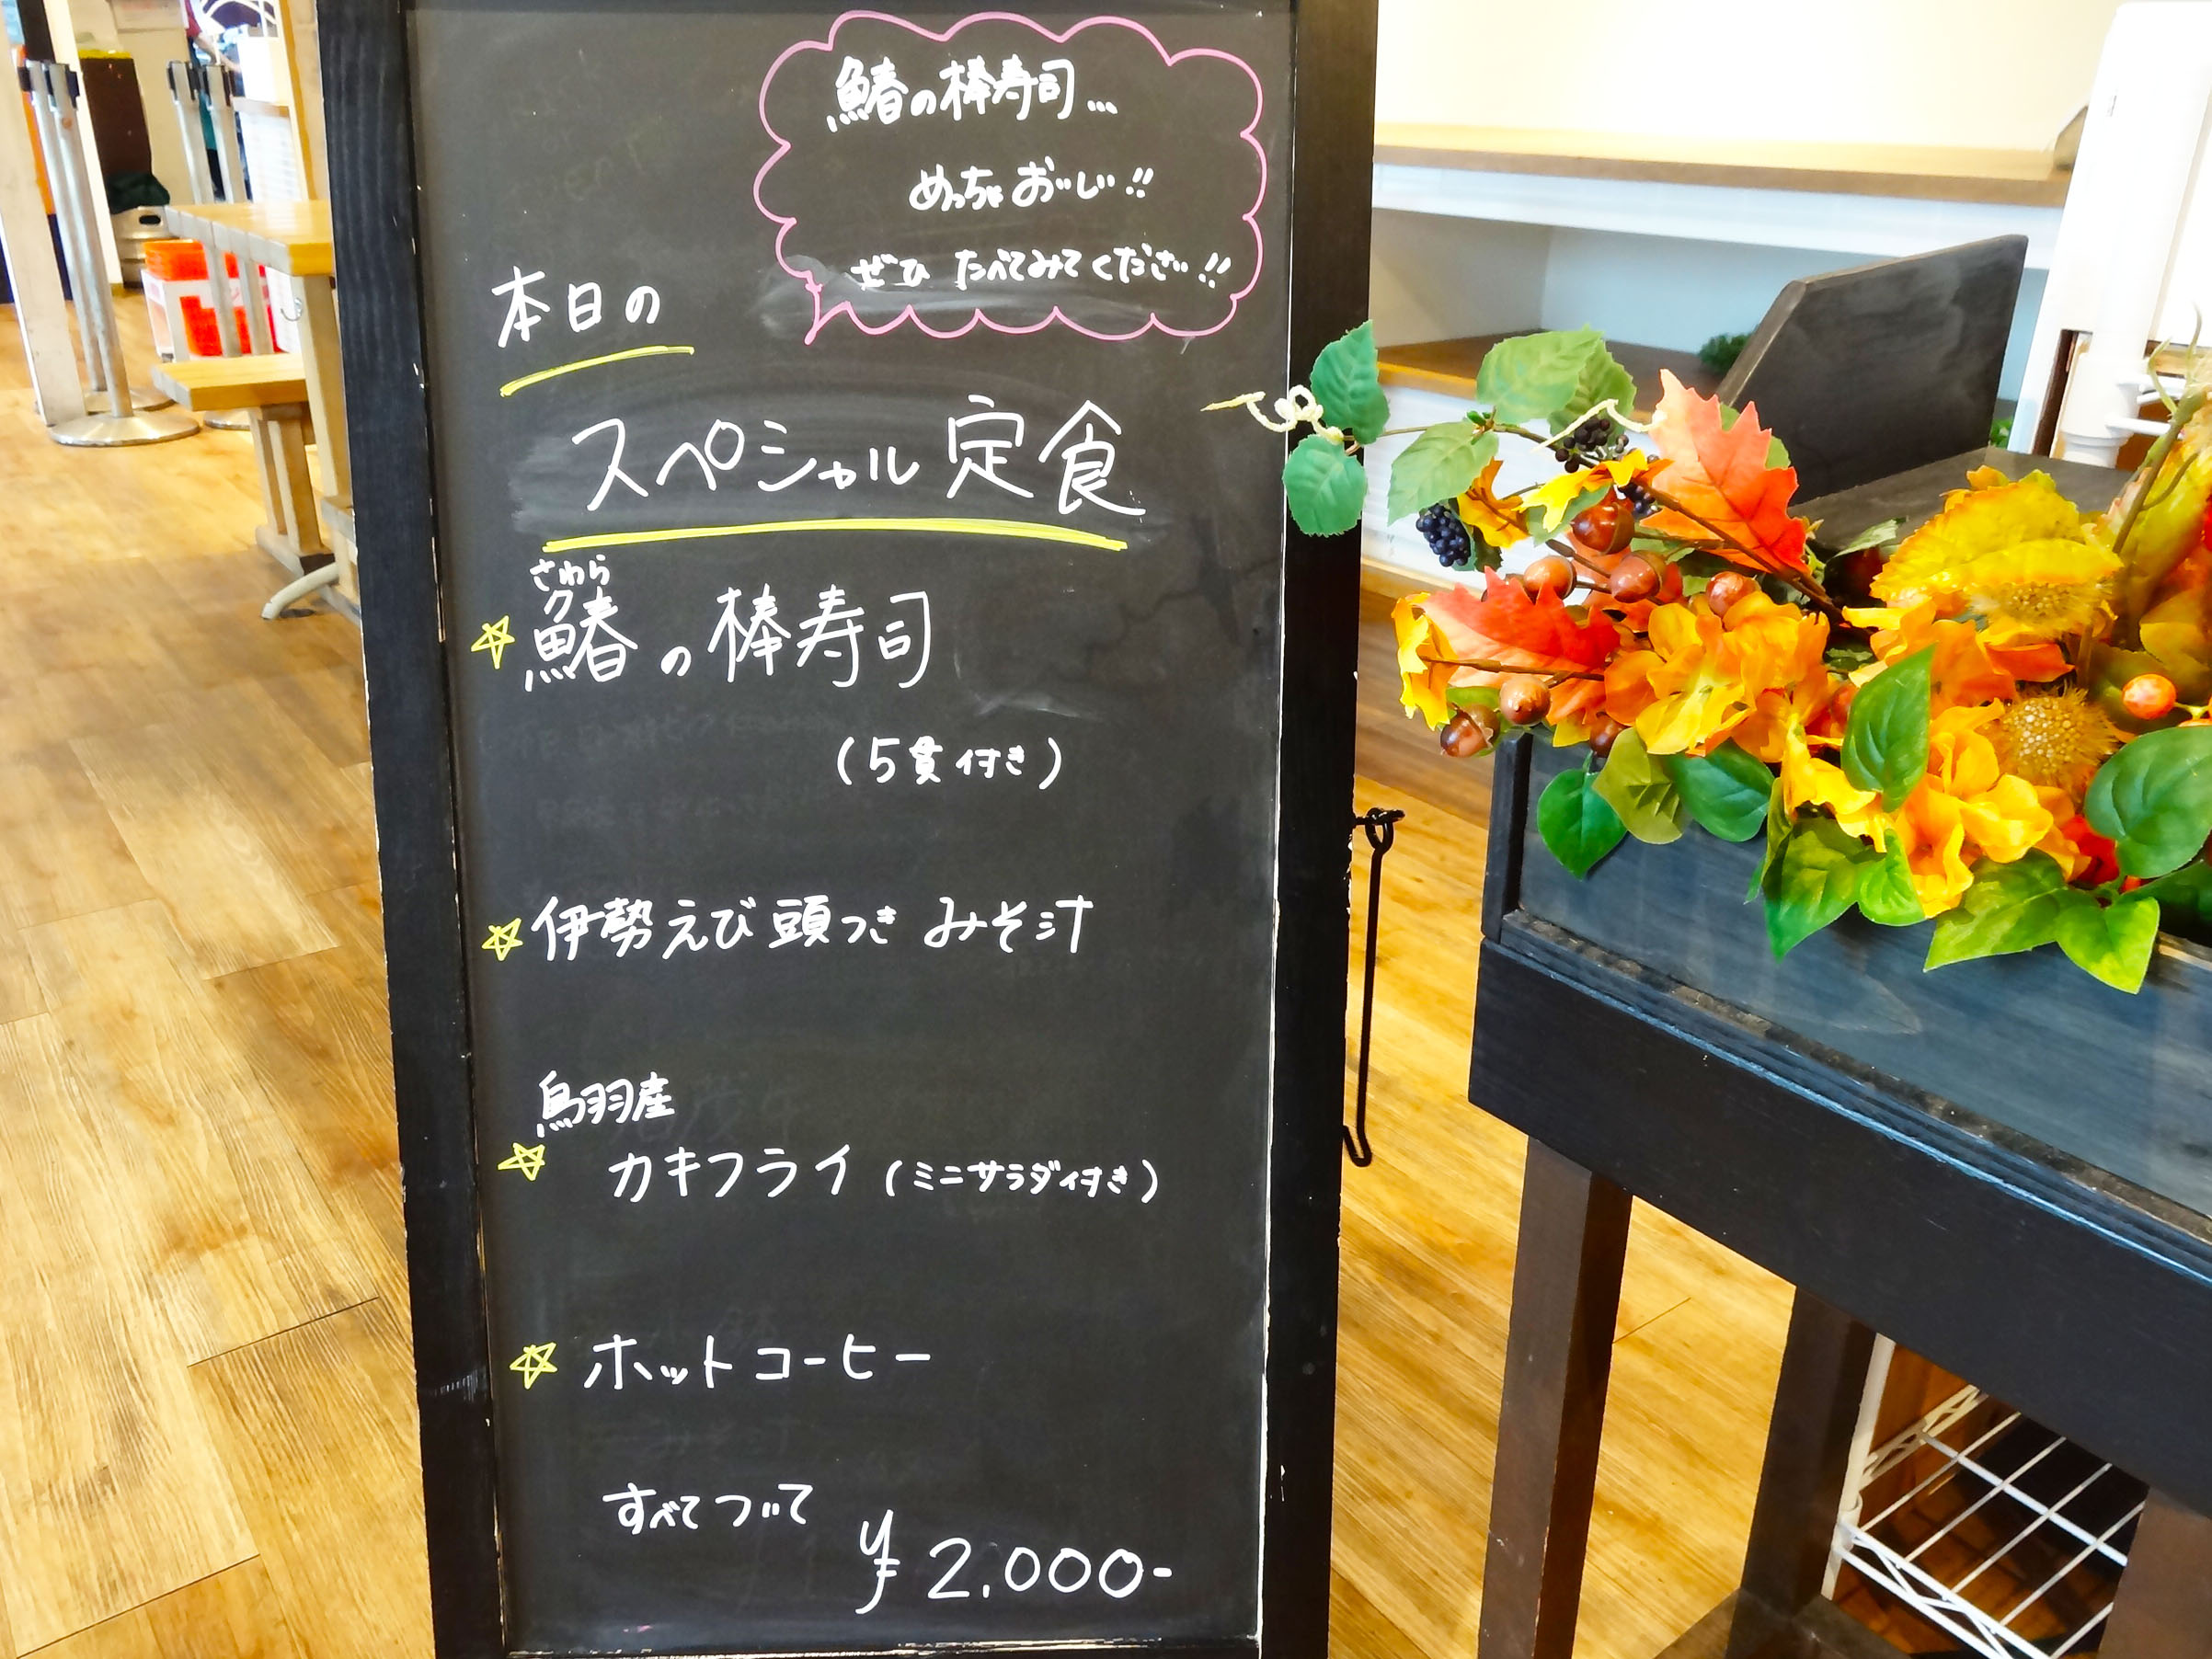 鰆の棒寿司…
めっちゃおいしい!!
ぜひ たべてみてください!!
本日の
スペシャル定食
さわら
鰆の棒寿司
(5貫付き)
伊勢えび頭つき みそ汁
鳥羽産
カキフライ(ミニサラダ付き)
ホットコーヒー
すべてついて
¥2,000-